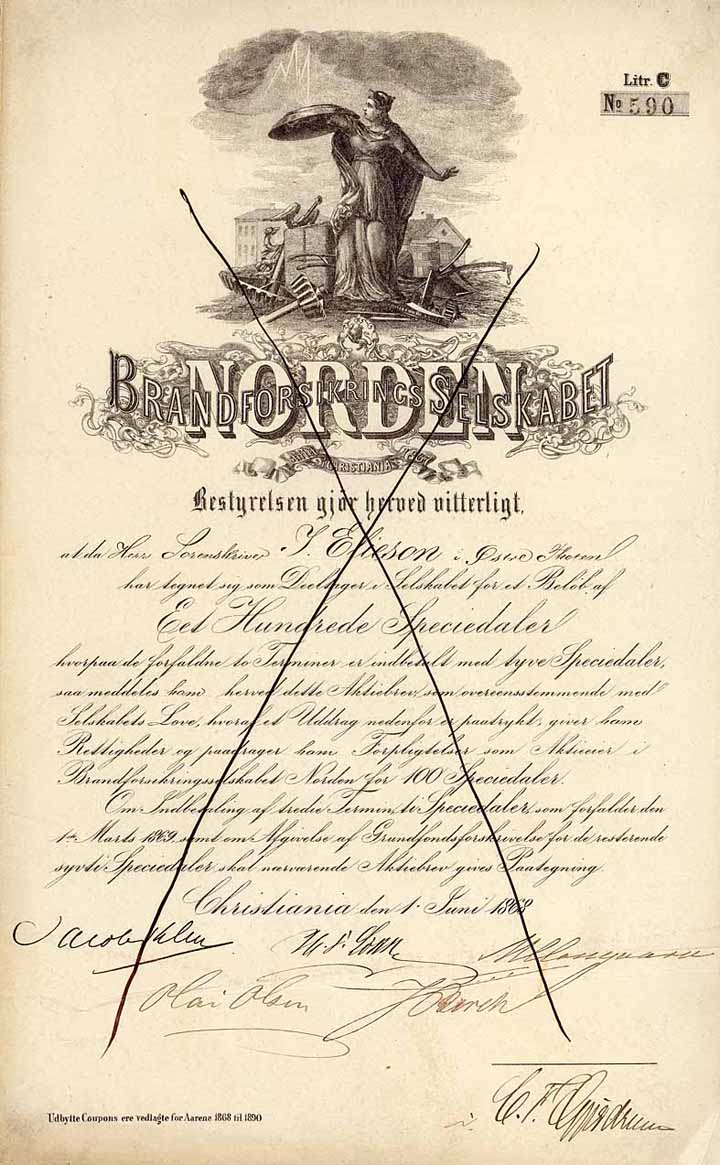 Litr. C
No 590
BRANDFORSIKRINGSSELSKABET
NORDEN
CHRISTIANIA
Bestyrelsen gjør herved vitterligt,
at da Herr Sorenskriver J. Elieson i Østre
har tegnet sig som Deeltager i Selskabet for et Beløb af
Eet Hundrede Speciedaler
hvorpaa de forfaldne to Terminer er indbetalt med tyve Speciedaler,
saa meddeles ham herved dette Aktiebrev, som overeensstemmende med
Selskabets Love, hvoraf et Uddrag nedenfor er paatrykt, giver ham
Rettigheder og paadrager ham Forpligtelser som Aktieeier i
Brandforsikringsselskabet Norden for 100 Speciedaler.
Om Indbetaling af tredie Termin, ti Speciedaler, som forfalder den
1ste Marts 1869, samt om Afgivelse af Grundfondsforskrivelse for de resterende
syvti Speciedaler skal nærværende Aktiebrev gives Paategning.
Christiania den 1. Juni 1868
Olai Olsen
Udbytte Coupons ere vedlagte for Aarene 1868 til 1890